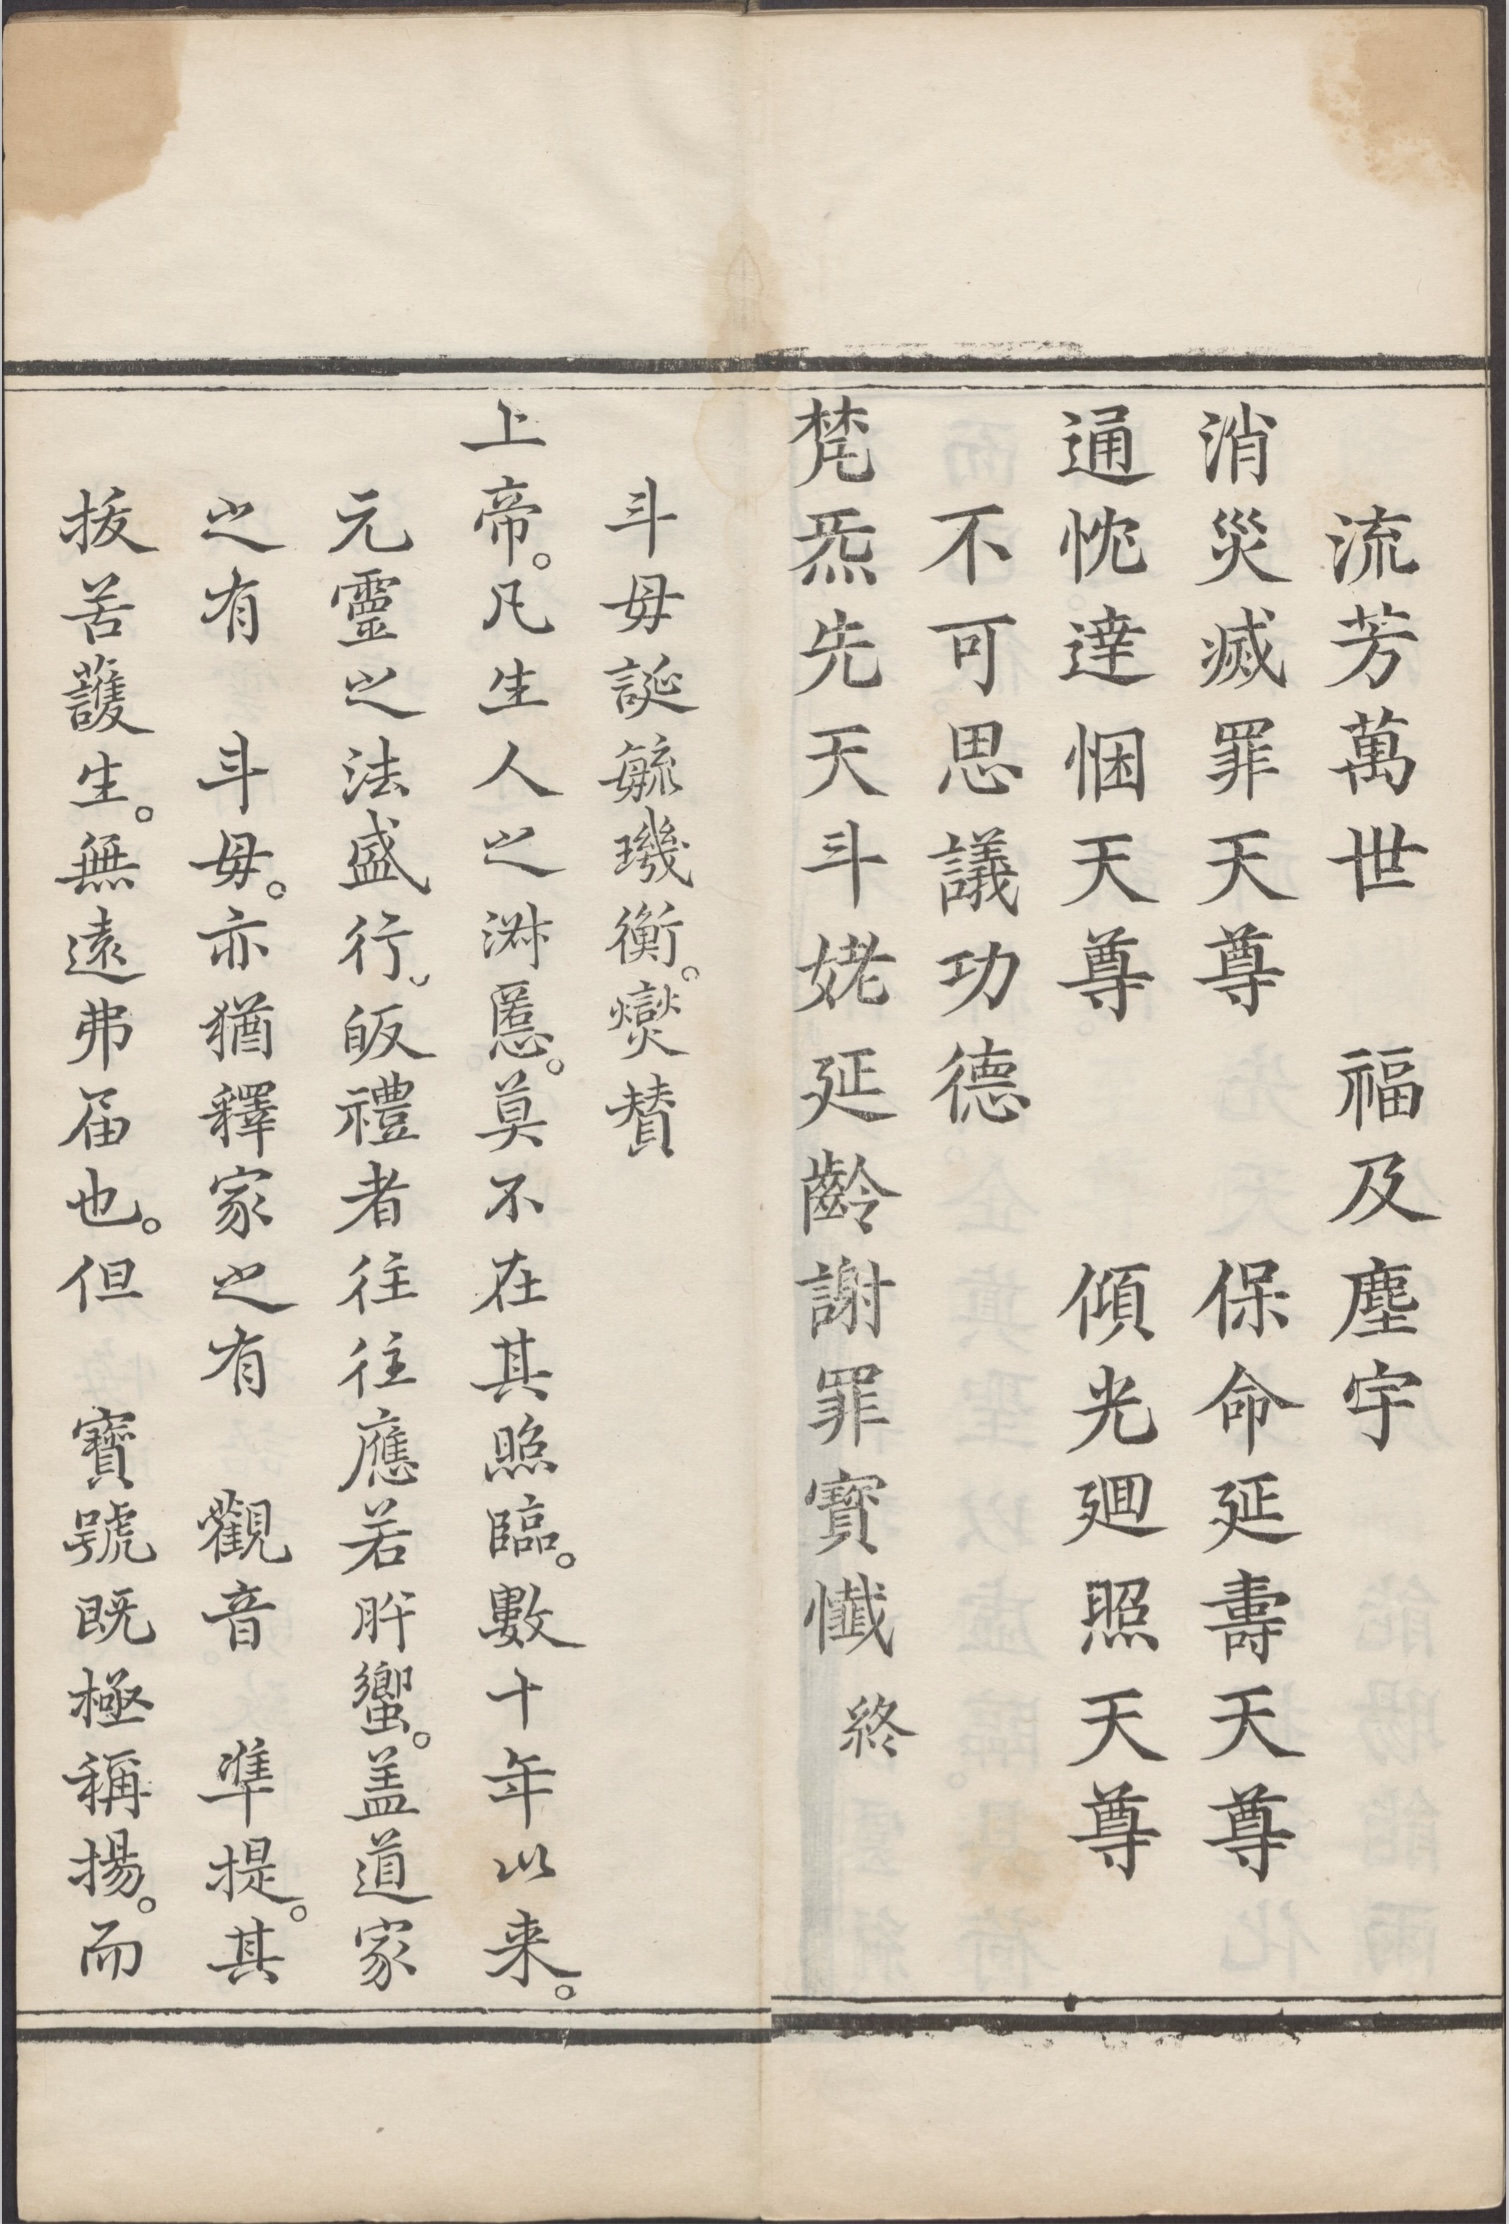 流芳萬世　福及塵宇
消災滅罪天尊　保命延壽天尊
通忱達悃天尊　傾光廻照天尊
不可思議功德
梵炁先天斗姥延齡謝罪寶懺終
斗毋誕毓璣衡。爕賛
上帝。凡生人之淋慝。莫不在其照臨。數十年以来。
元靈之法盛行。皈禮者往往應若肸蠁。盖道家
之有　斗毋。亦猶釋家之有　觀音　準提。其
拔苦護生。無遠弗届也。但　寶號既極稱揚。而